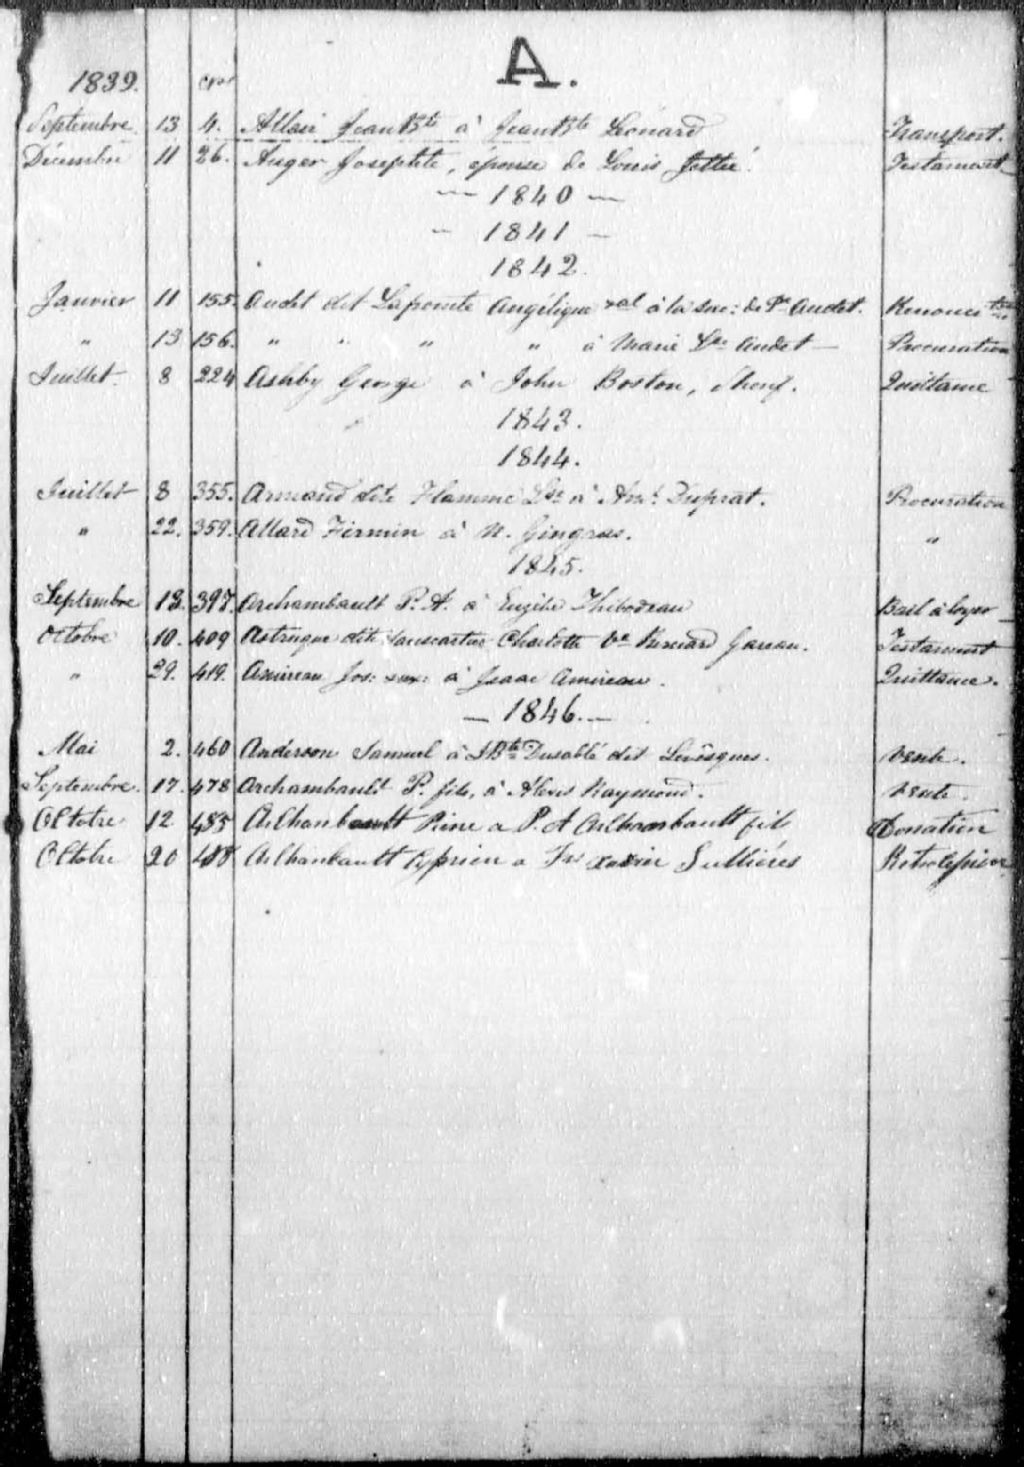 A.
1839. Nos
Septembre 13 4. Allair Jean Bte à Jean Bte Léonard Transport.
Décembre 11 26. Auger Josephte, épouse de Louis Jetté. Testament
— 1840 —
— 1841 —
1842.
Janvier 11 155. Audet dit Lapointe Angélique &al à la suc: de Pre Audet. Renonci
" 13 156. " " " " à Marie Audet — Procuration
Juillet 8 224 Ashby George à John Boston, Sherif. Quittance
1843.
1844.
Juillet 8 355. Armand dite Flamme Lse à Ant. Duprat. Procuration
" 22. 359. Allard Firmin à N. Gingras. "
1845.
Septembre 13. 397. Archambault P. A. à Euzèbe Thibodeau Bail à loyer
Octobre 10. 409 Astrugue dite Charlotte Ve Bernard Gareau. Testament
" 29. 419. Amireau Jos: à Isaac Amireau. Quittance.
— 1846. —
Mai 2. 460 Anderson Samuel à J Bte Dusablé dit Levêsques. Vente.
Septembre 17. 478 Archambault P. fils, à Alexis Raymond. Vente.
Octobre 12 485 Archambault Pierre a P. A Archambault fils Donation
Octobre 20 488 Archambault Cyprien a Frs Xavier Sullières